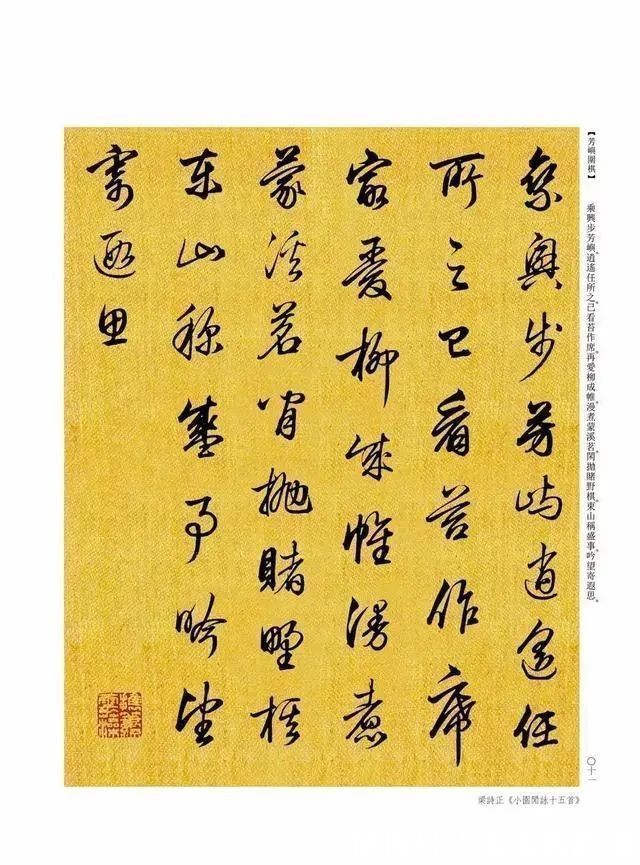 【芳嶼圍棋】
乘興步芳嶼。逍遙任所之。已看苔作席。再愛柳成帷。漫煮蒙溪茗。閑拋賭野棋。東山稱盛事。吟望寄遐思。
乘興步芳嶼逍遙任
所之已看苔作席
最愛柳成帷漫煮
蒙溪茗閑拋賭野棋
東山稱盛事吟望
寄遐思
〇十一
梁詩正《小園閒詠十五首》